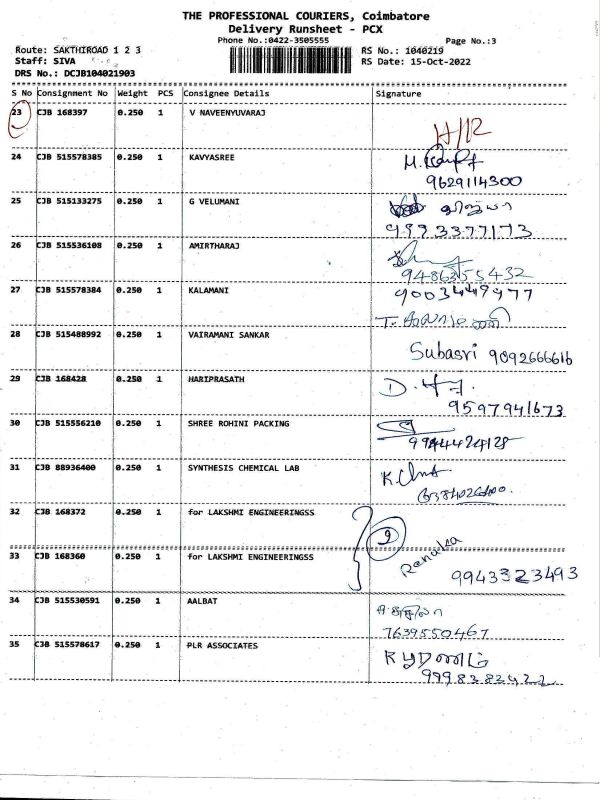 THE PROFESSIONAL COURIERS, Coimbatore
Delivery Runsheet - PCX
Phone No.:0422-3505555
Page No.:3
Route: SAKTHIROAD 1 2 3
RS No.: 1040219
Staff: SIVA
RS Date: 15-Oct-2022
DRS No.: DCJB104021903
S No Consignment No Weight PCS Consignee Details Signature
23 CJB 168397 0.250 1 V NAVEENYUVARAJ
H/R
24 CJB 515578385 0.250 1 KAVYASREE
9629114300
25 CJB 515133275 0.250 1 G VELUMANI
விஜயா
9993377173
26 CJB 515536108 0.250 1 AMIRTHARAJ
9486355432
27 CJB 515578384 0.250 1 KALAMANI 9003449977
28 CJB 515488992 0.250 1 VAIRAMANI SANKAR
Subasri 9092666616
29 CJB 168428 0.250 1 HARIPRASATH
9597941673
30 CJB 515556210 0.250 1 SHREE ROHINI PACKING
31 CJB 88936400 0.250 1 SYNTHESIS CHEMICAL LAB
32 CJB 168372 0.250 1 for LAKSHMI ENGINEERINGSS
33 CJB 168360 0.250 1 for LAKSHMI ENGINEERINGSS
Renuka
9943323493
34 CJB 515530591 0.250 1 AALBAT
7639550467
35 CJB 515578617 0.250 1 PLR ASSOCIATES